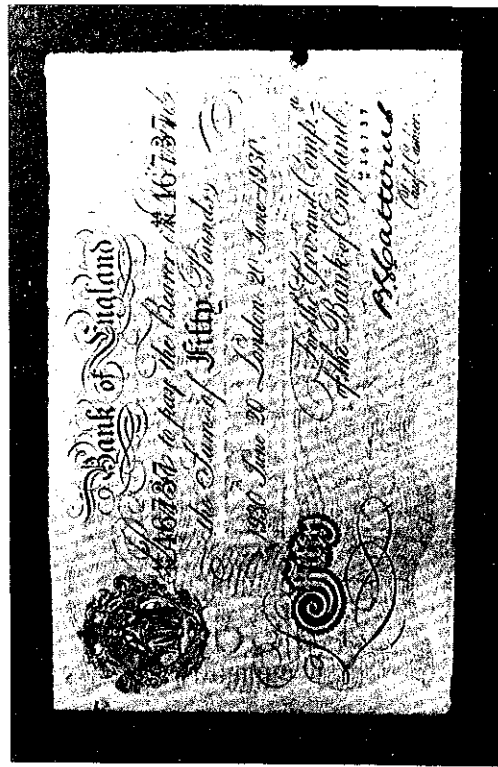 Bank of England
46737 to pay the Bearer 46737
the Sum of Fifty Pounds
1930 June 20 London 20 June 1930
For the Gov.r and Comp.a
of the Bank of England.
Fifty
Chief Cashier.